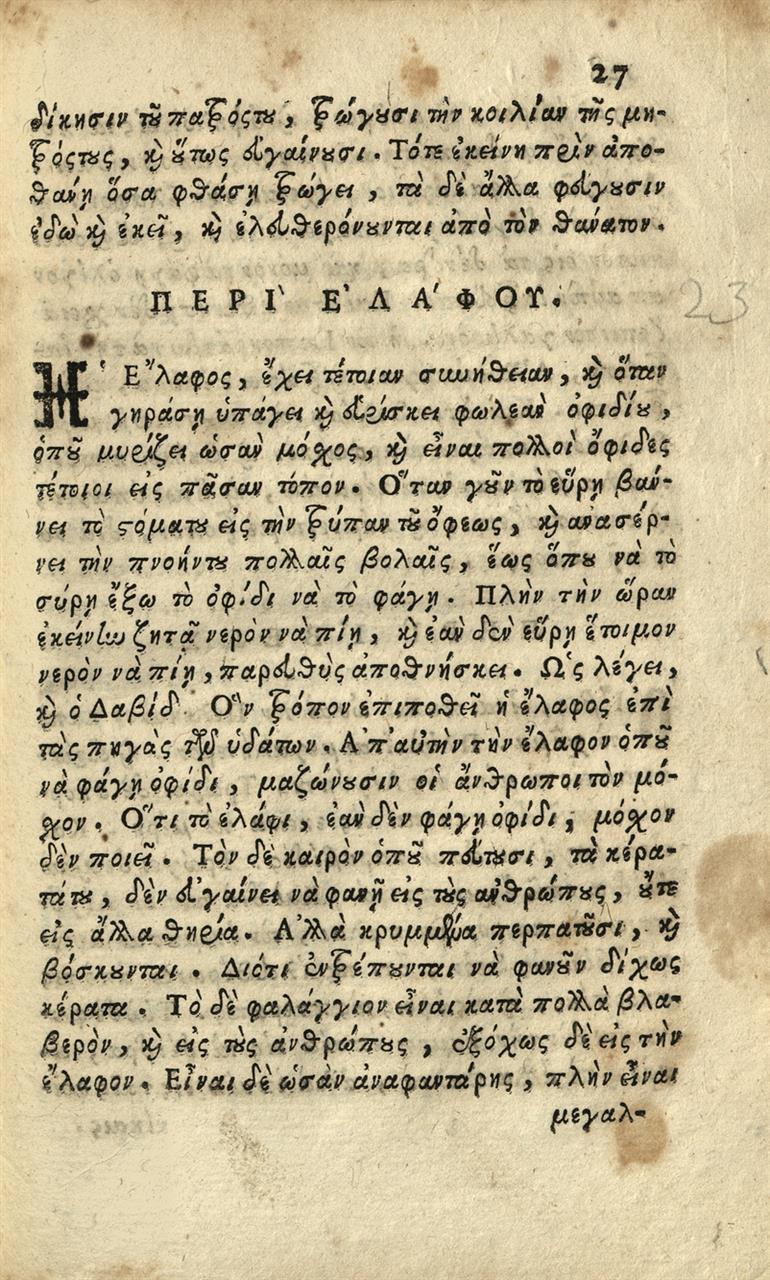 27
δίκησιν τοῦ πατρόςτου, τρώγουσι τὴν κοιλίαν τῆς μη-
τρόςτους, καὶ οὕτως εὐγαίνουσι. Τότε ἐκείνη πρὶν ἀπο-
θανῃ ὅσα φθάσῃ τρώγει, τὰ δὲ ἄλλα φεύγουσιν
ἐδῶ καὶ ἐκεῖ, καὶ ἐλευθερόνουνται ἀπὸ τὸν θάνατον.
ΠΕΡΙ` Ε'ΛΑ'ΦΟΥ.
Ἡ Ἔλαφος, ἔχει τέτοιαν συνήθειαν, καὶ ὅταν
γηράσῃ ὑπάγει καὶ εὑρίσκει φωλεὰν ὀφιδίου,
ὁποῦ μυρίζει ὡσὰν μόχος, καὶ εἶναι πολλοὶ ὄφιδες
τέτοιοι εἰς πᾶσαν τόπον. Ὅταν γοῦν τὸ εὕρῃ βαύ-
νει τὸ στόματου εἰς τὴν τρύπαν τοῦ ὄφεως, καὶ ανασέρ-
νει τὴν πνοήντου πολλαῖς βολαῖς, ἕως ὅπου νὰ τὸ
σύρῃ ἔξω τὸ ὀφίδι νὰ τὸ φάγῃ. Πλὴν τὴν ὥραν
ἐκείνην ζητᾶ νερὸν νὰ πίῃ, καὶ ἐὰν δὲν εὕρῃ ἕτοιμον
νερὸν νὰ πίῃ, παρευθὺς ἀποθνήσκει. Ὡς λέγει,
καὶ ὁ Δαβίδ. Ὃν τρόπον ἐπιποθεῖ ἡ ἔλαφος ἐπὶ
τὰς πηγὰς τῶν ὑδάτων. Ἀπ' αὐτὴν τὴν ἔλαφον ὁποῦ
νὰ φάγῃ ὀφίδι, μαζώνουσιν οἱ ἄνθρωποι τὸν μό-
χον. Ὅτι τὸ ἐλάφι, ἐὰν δὲν φάγῃ ὀφίδι, μόχον
δὲν ποιεῖ. Τὸν δὲ καιρὸν ὁποῦ πέυτουσι, τὰ κέρα-
τάτου, δὲν εὐγαίνει νὰ φανῇ εἰς τοὺς ανθρώπους, οὔτε
εἰς ἄλλα θηρία. Ἀλλὰ κρυμμένα περπατοῦσι, καὶ
βόσκουνται. Διότι ἐντρέπουνται νὰ φανοῦν δίχως
κέρατα. Τὸ δὲ φαλάγγιον εἶναι κατὰ πολλὰ βλα-
βερὸν, καὶ εἰς τοὺς ἀνθρώπους, ἐξόχως δὲ εἰς τὴν
ἔλαφον. Εἶναι δὲ ὡσὰν ἀναφαντάρης, πλὴν εἶναι
μεγαλ-
23